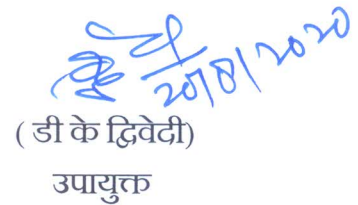 20/8/2020
( डी के द्विवेदी)
उपायुक्त